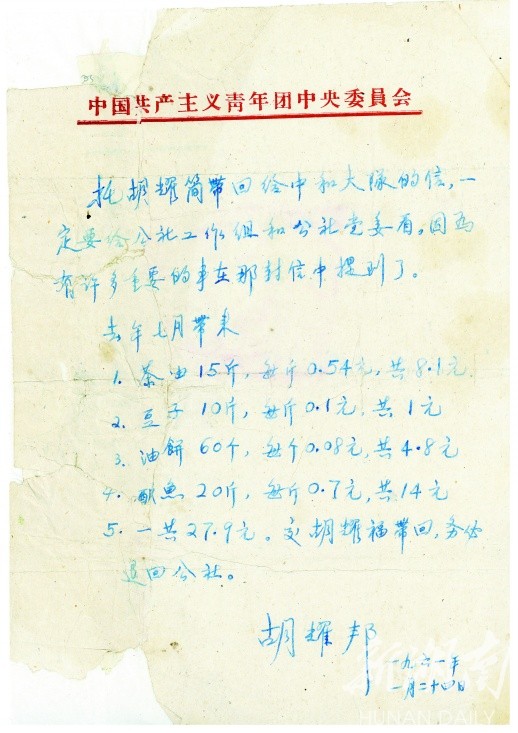 中国共产主义青年团中央委員会
托胡耀简带回给中和大队的信,一
定要给公社工作组和公社党委看。因为
有许多重要的事在那封信中提到了。
去年七月带来
1. 茶油15斤,每斤0.54元,共8.1元
2. 豆子10斤,每斤0.1元,共1元
3. 油餅60个,每斤0.08元,共4.8元
4. 魚20斤,每斤0.7元,共14元
5. 一共27.9元。交胡耀福带回,务必
退回公社。
胡耀邦
一九六一年
一月二十四日
新湖南
HUNAN DAILY